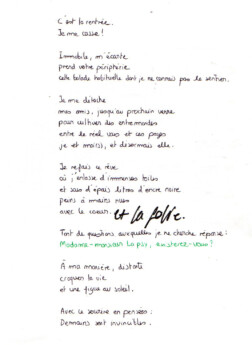 C'est la rentrée.
Je me casse!
Immobile, m'écarte
prend votre périphérie
cette balade habituelle dont je ne connais pas le
Je me détache
mes amis, jusqu'au prochain verre
pour cultiver des entremondes
entre le réel, vous et ces pages
je et moi(s), et désormais elle.
Je refais le rêve
où j'entasse d'immenses toiles
et sous d'épais litres d'encre noire
peins à mains nues
avec le coeur. et la folie.
Tant de questions auxquelles je ne cherche réponse:
Madame-monsieur la psy, existerez-vous?
À ma manière, distraite
croquer la vie
et une figue au soleil.
Avec le sourire en pensées:
Demains sont invincibles.